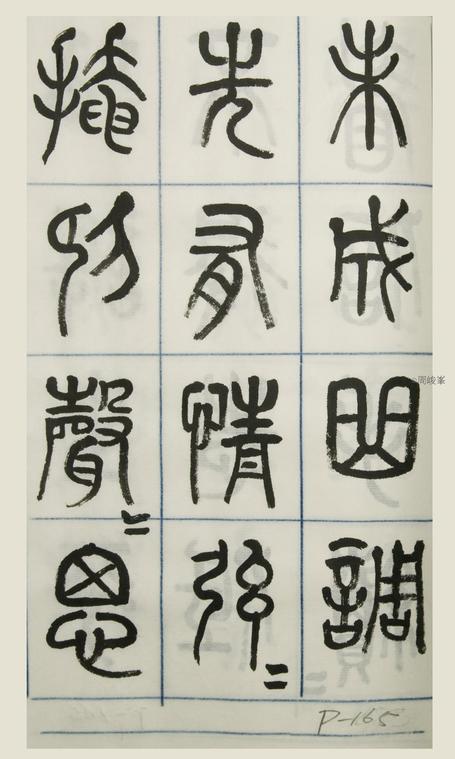 未成曲調
先有情弦=
掩抑聲=思
P-165
周峻峯